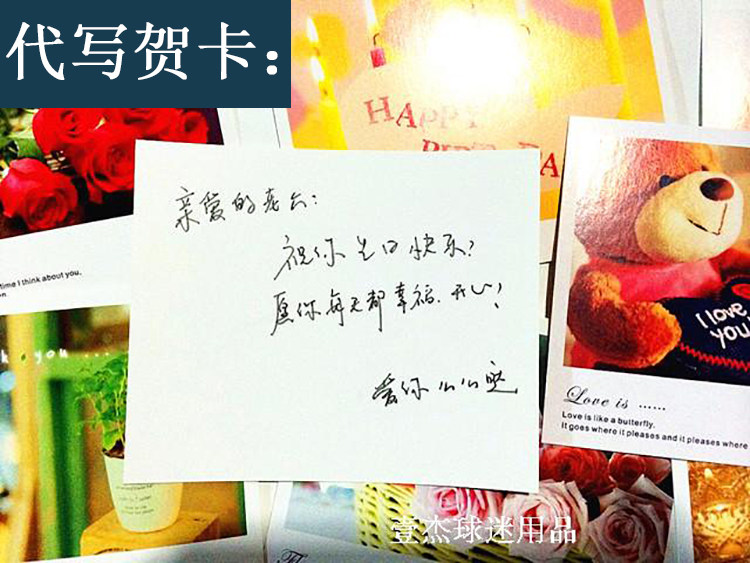 代写贺卡：
HAPPY
亲爱的老公：
祝你生日快乐！
愿你每天都幸福、开心！
爱你
time I think about you,
you ...
I love
you!
Love is ......
Love is like a butterfly.
It goes where it pleases and it pleases where
壹杰球迷用品